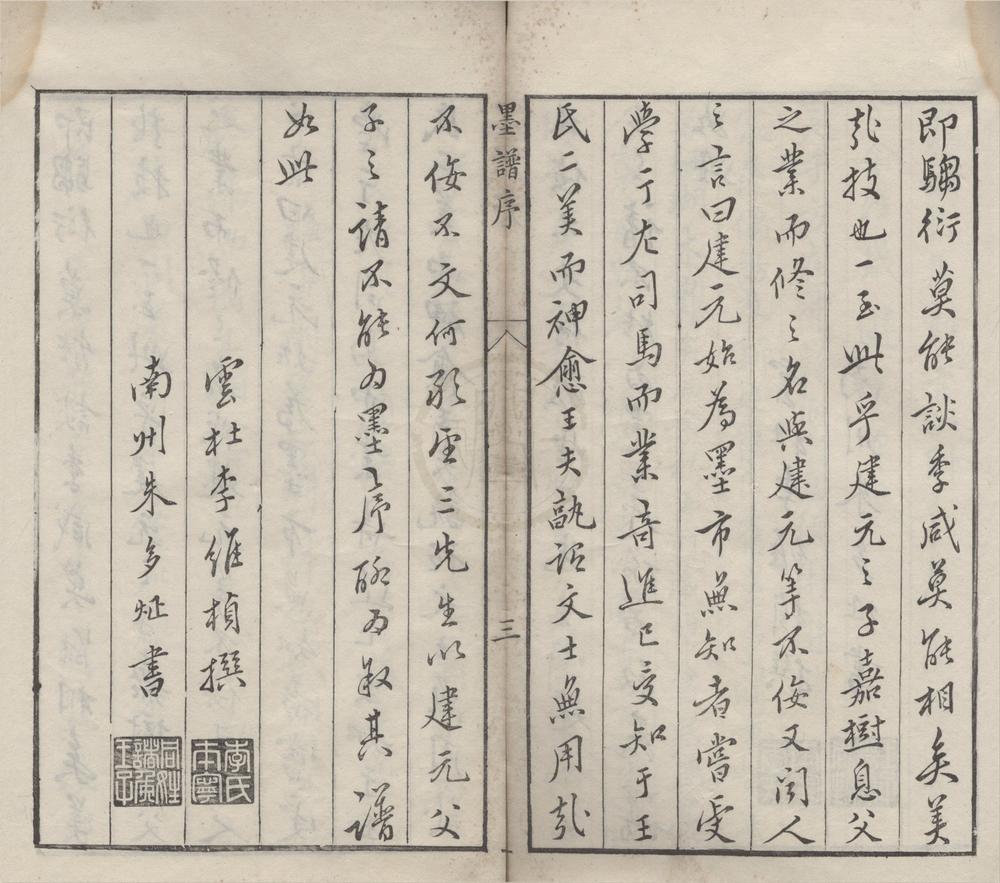 即騶衍莫能談季咸莫能相矣美
哉技也一至此乎建元之子嘉樹息父
之業而修之名與建元等不佞又聞人
之言曰建元始為墨市無知者嘗受
學于左司馬而業奇進已受知于王
氏二美而神愈王夫孰謂文士無用哉
墨譜序
三
不佞不文何敢望三先生以建元父
子之請不能為墨々序聊為敘其譜
如此
雲杜李維楨撰
南州朱多炡書
李氏本寧